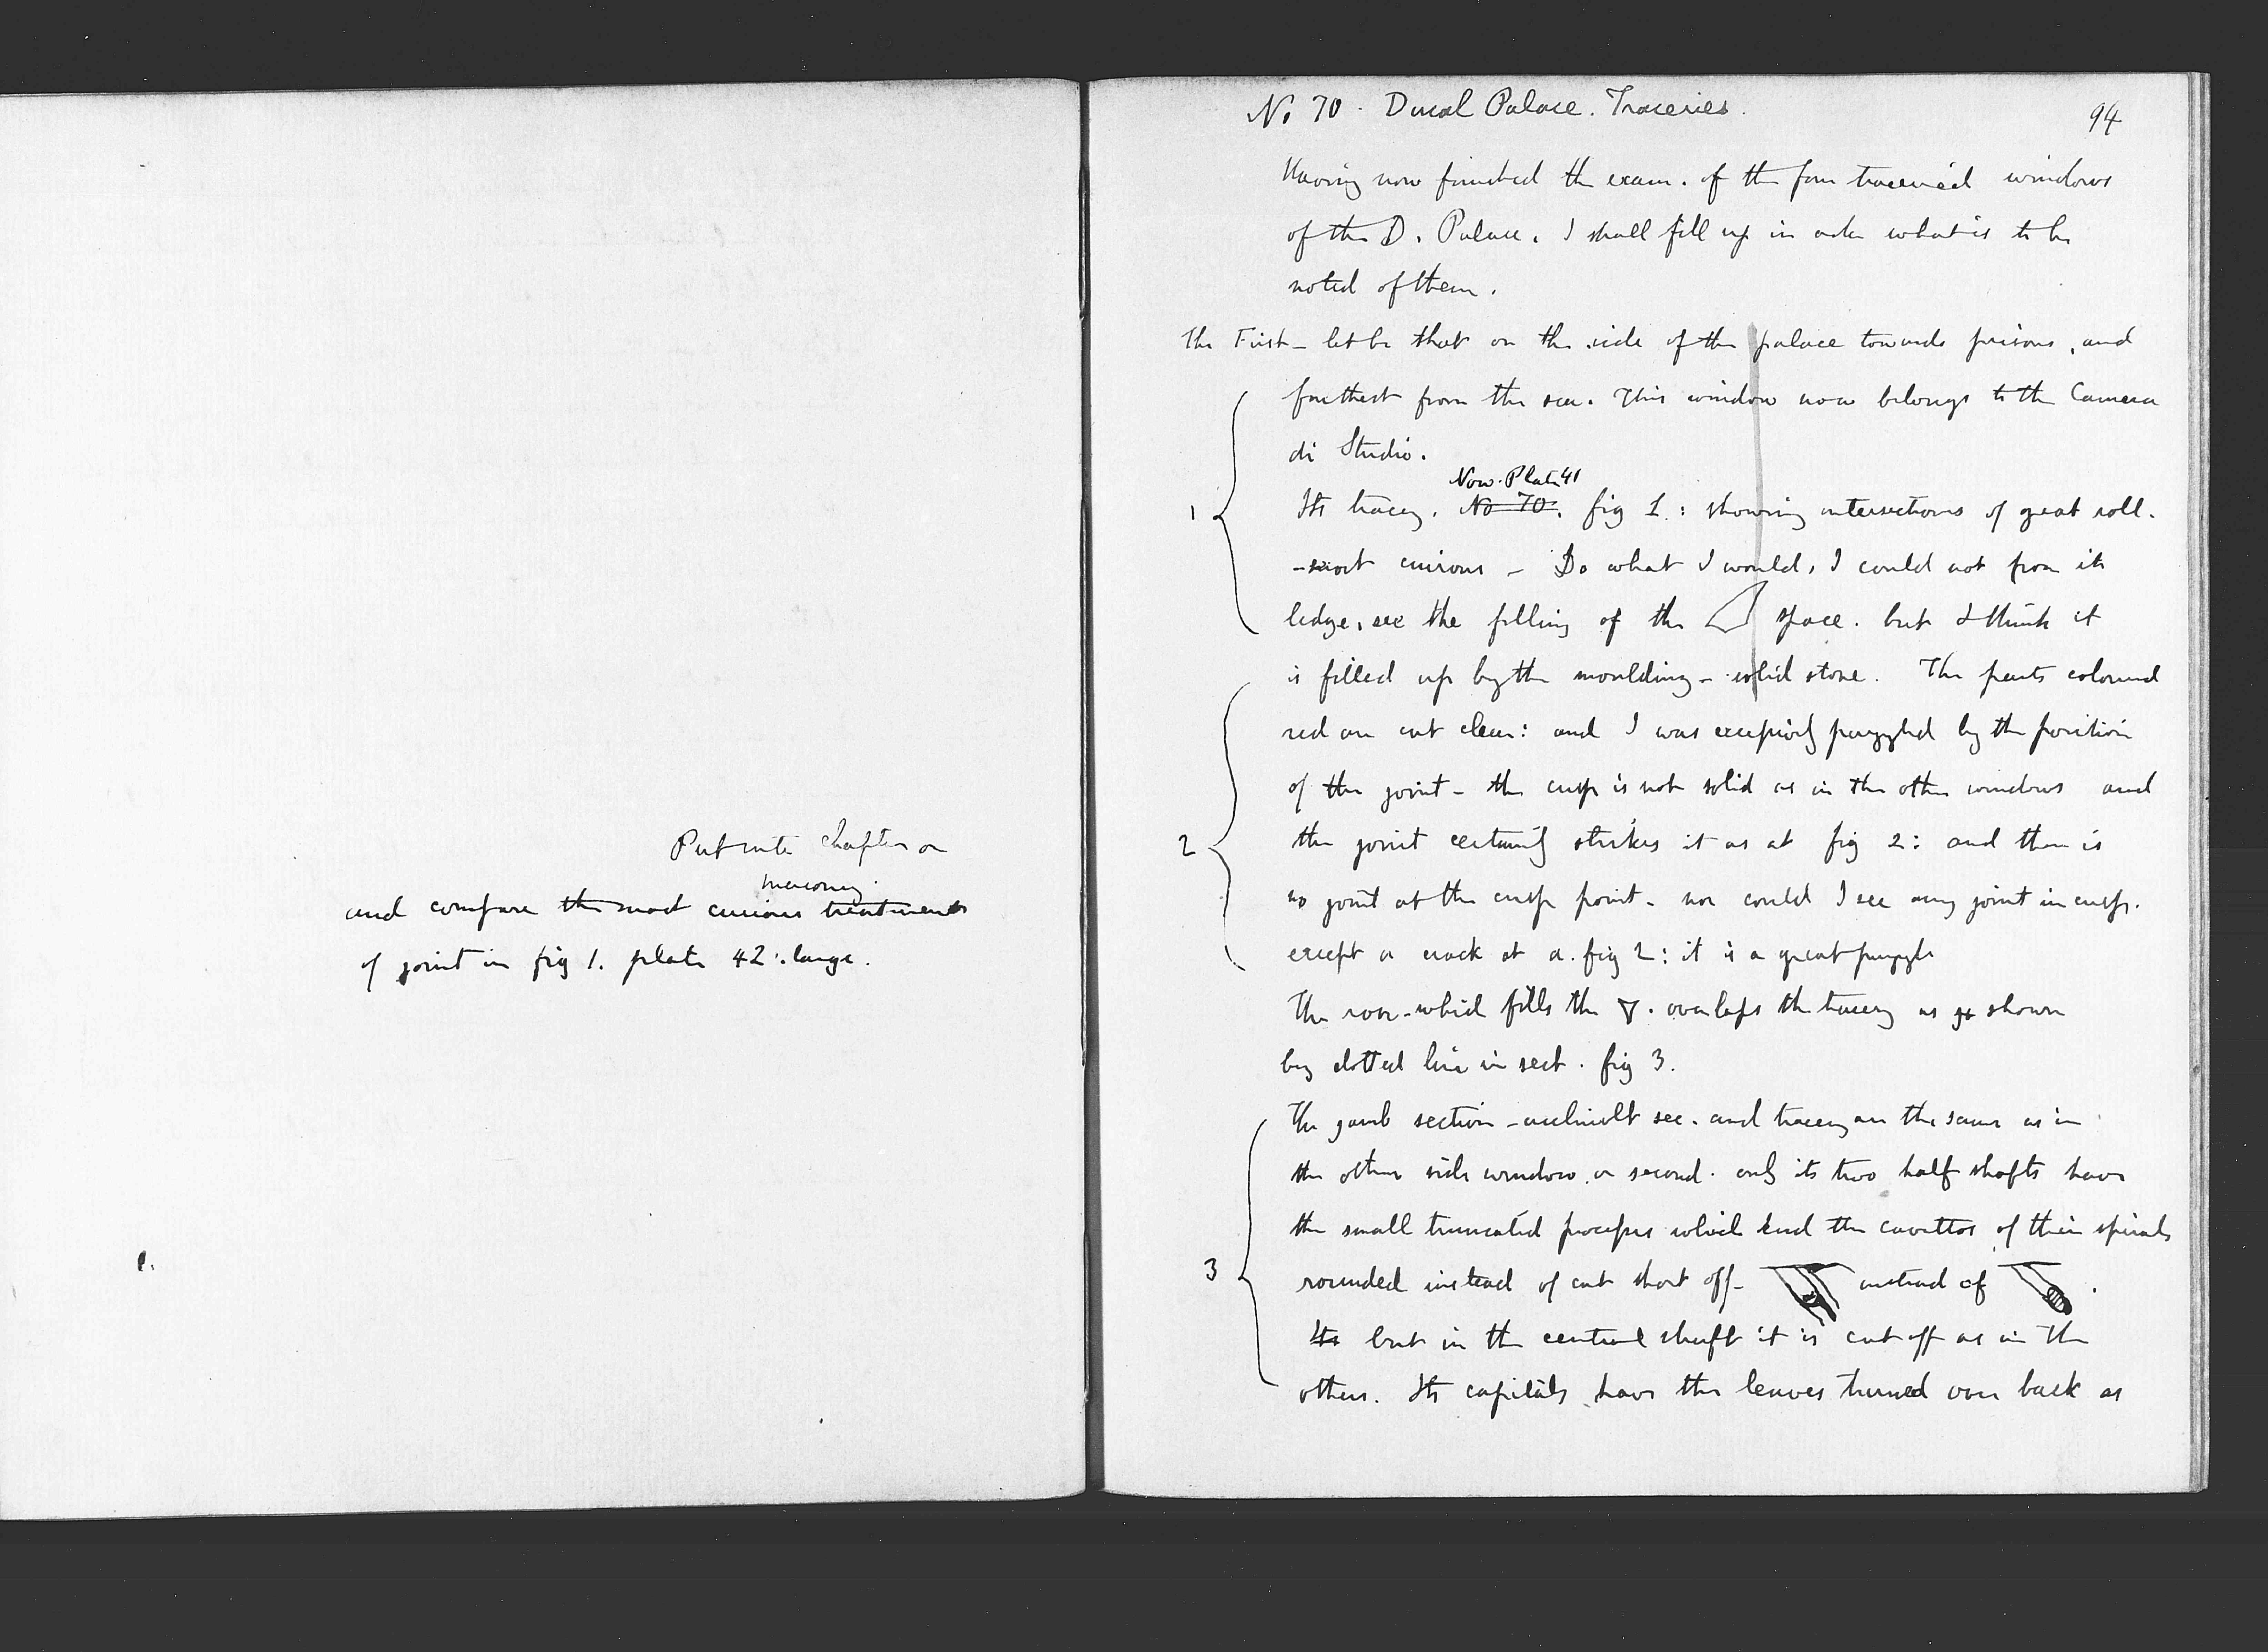 Put into chapter on
masonry
and compare the most curious treatment
of joint in fig 1. plate 42 : large.
No 70 . Ducal Palace . Traceries .
94
Having now finished the exam . of the four traceried windows
of the D . Palace . I shall fill up in order what is to be
noted of them .
The First - let be that on the side of the palace towards prisons , and
farthest from the sea . This window now belongs to the Camera
di Studio .
Now . Plate 41
1
Its tracery . No 70 . fig 1 . : showing intersections of great roll .
- most curious - Do what I would , I could not from its
ledge , see the filling of the space . but I think it
is filled up by the moulding - solid stone . The parts coloured
red are cut clear : and I was excessively puzzled by the position
of the joint - the cusp is not solid as in the other windows and
2
the joint certainly strikes it as at fig 2 : and there is
no joint at the cusp point - nor could I see any joint in cusp .
except a crack at a . fig 2 : it is a great puzzle
The rose - which fills the . overlaps the tracery as shown
by dotted line in sect . fig 3 .
The jamb section - archivolt sec . and tracery are the same as in
the other side window . or second . only its two half shafts have
the small truncated processes which end the cavettos of their spirals
3
rounded instead of cut short off - instead of .
Its but in the central shaft it is cut off as in the
others . Its capitals have the leaves turned over back as